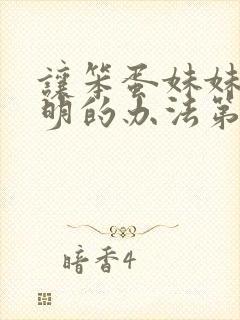 讓笨蛋妹妹
明的办法第
暗香4